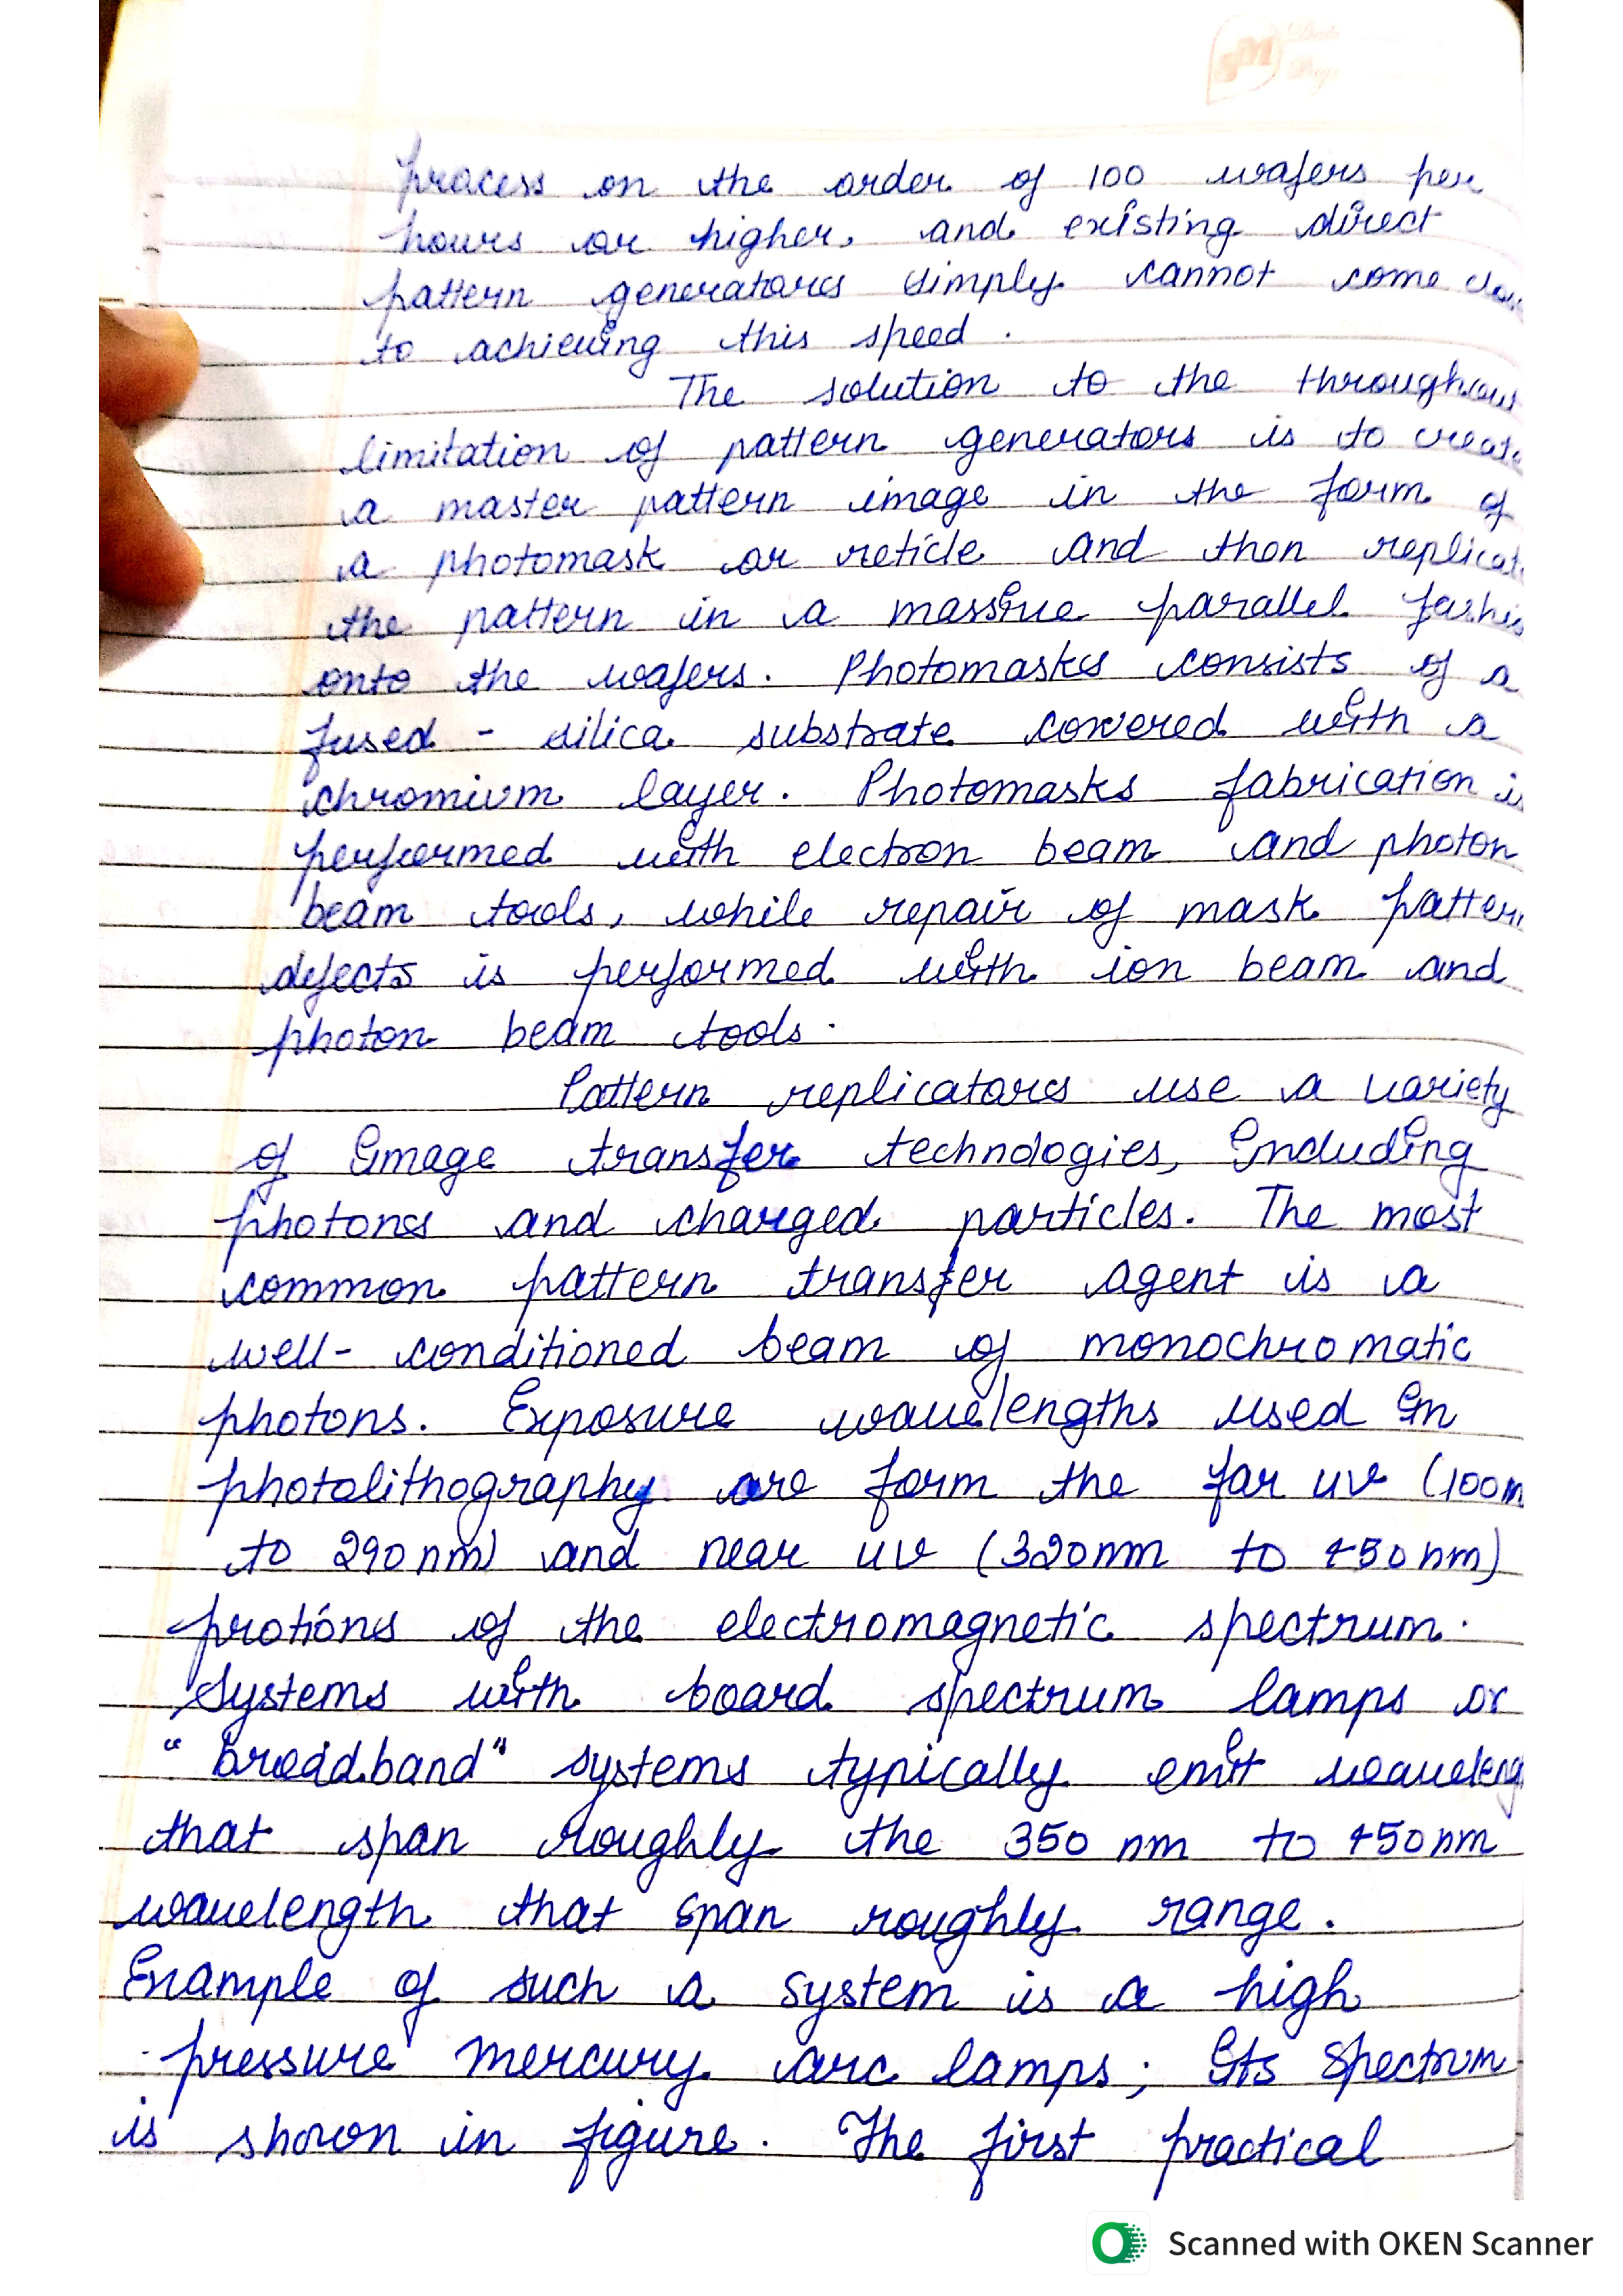 SM Date
Page
process on the order of 100 wafers per
hours or higher, and existing direct
pattern generators simply cannot come
to achieving this speed.
The solution to the
limitation of pattern generators is to create
a master pattern image in the form of
a photomask or reticle and then replicat
the pattern in a massive parallel fashio
onto the wafers. Photomasks consists of a
fused - silica substrate covered with a
chromium layer. Photomasks fabrication is
performed with electron beam and photon
beam tools, while repair of mask pattern
defects is performed with ion beam and
photon beam tools.
Pattern replicators use a variety
of image transfer technologies, including
photons and charged particles. The most
common pattern transfer agent is a
well- conditioned beam of monochromatic
photons. Exposure wavelengths used in
photolithography are form the far uv (100n
to 290nm) and near uv (320nm to 450nm)
protions of the electromagnetic spectrum.
Systems with board spectrum lamps or
"broadband" systems typically emit waveleng
that span roughly the 350 nm to 450nm
wavelength that span roughly range.
Example of such a system is a high
pressure mercury arc lamps; its spectrum
is shown in figure. The first practical
Scanned with OKEN Scanner